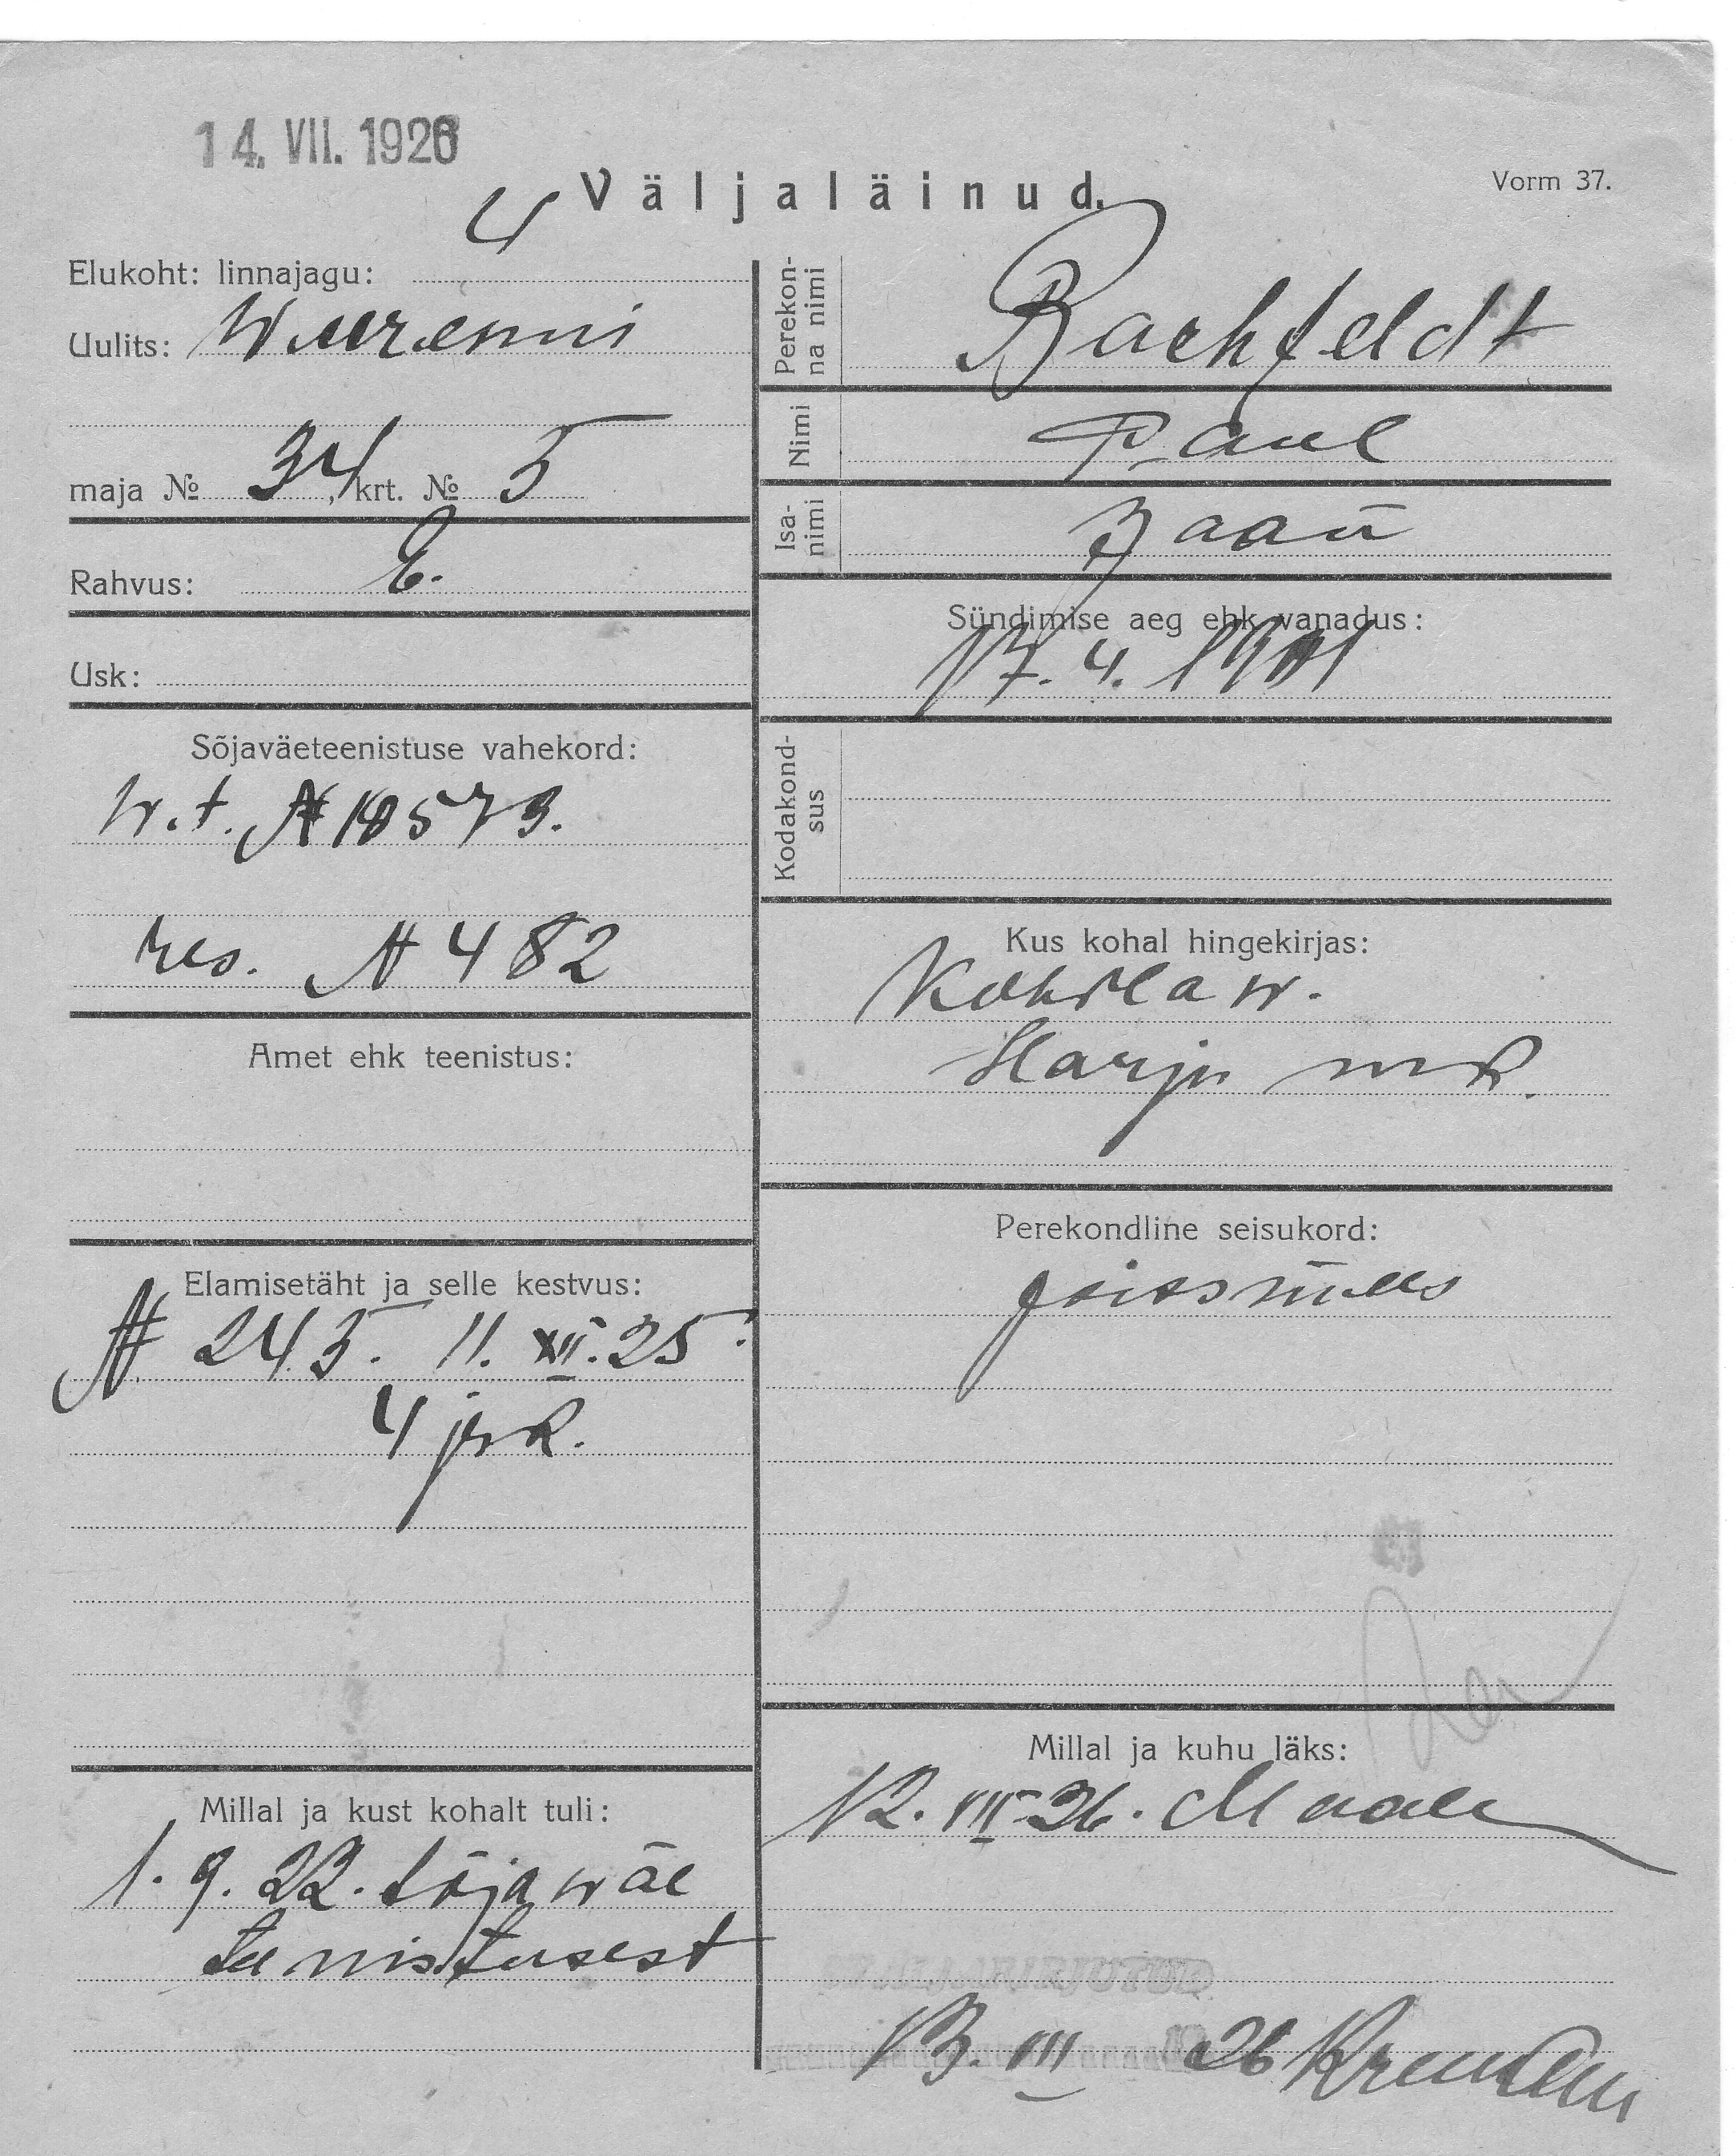 14. VII. 1926
Väljaläinud.
Vorm 37.
Elukoht: linnajagu: 4
Uulits: Wuurenni
maja № 34, krt. № 5
Rahvus: E.
Usk:
Sõjaväeteenistuse vahekord:
W. t. № 18573.
res. № 482
Amet ehk teenistus:
Elamisetäht ja selle kestvus:
№ 245. 11. XII. 25.
4 jsk.
Millal ja kust kohalt tuli:
1. 9. 22. sõjawäe
teenistusest
Perekonna nimi
Bachfeldt
Nimi
Paul
Isanimi
Jaan
Sündimise aeg ehk vanadus:
17. 4. 1901
Kodakondsus
Kus kohal hingekirjas:
Kohila w.
Harju mk.
Perekondline seisukord:
poissmees
Millal ja kuhu läks:
12. VII 26. Maale
13. VII 26